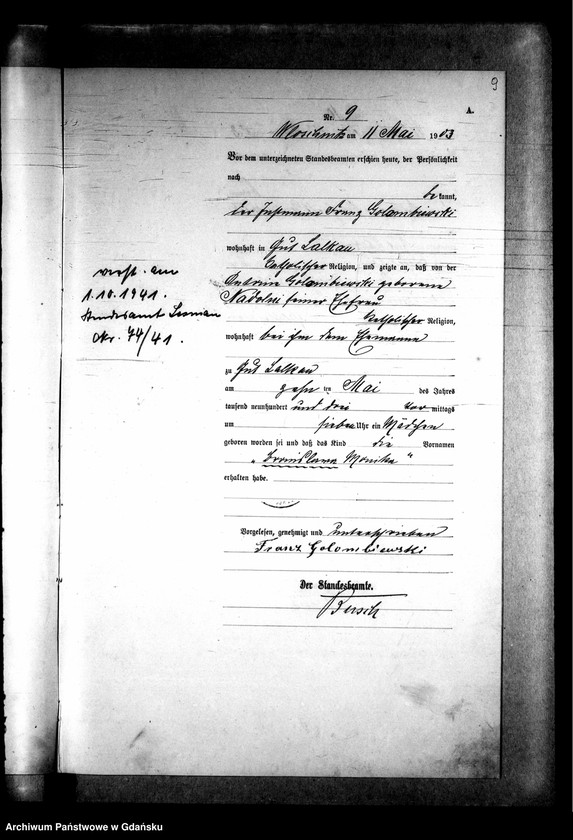 9
A.
Nr. 9
Wloschnitz am 11 Mai 1903
Vor dem unterzeichneten Standesbeamten erschien heute, der Persönlichkeit
nach
bekannt,
der Instmann Franz Golambiewski
wohnhaft in Gut Lalkau
katholischer Religion, und zeigte an, daß von der
Antonie Golambiewski geborene
Nadolni seiner Ehefrau
katholischer Religion,
wohnhaft bei ihm dem Ehemanne
zu Gut Lalkau
am zehn ten Mai des Jahres
tausend neunhundert und drei vor mittags
um sieben Uhr ein Mädchen
geboren worden sei und daß das Kind die Vornamen
„Bronislawa Monika“
erhalten habe.
Vorgelesen, genehmigt und unterschrieben
Franz Golombiewski
Der Standesbeamte.
verh. am
1.10.1941.
Standesamt
Nr. 74/41.
Archiwum Państwowe w Gdańsku